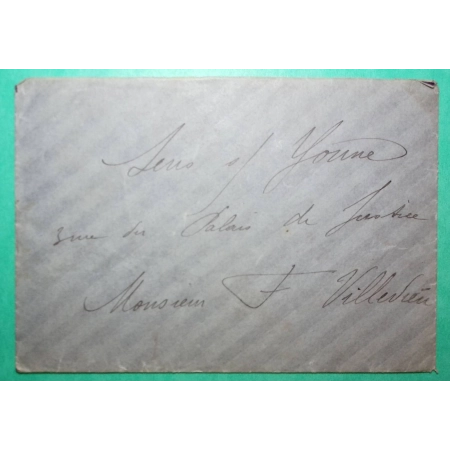 Sens s/ Yonne
3 rue du Palais de Justice
Monsieur F Villedieu